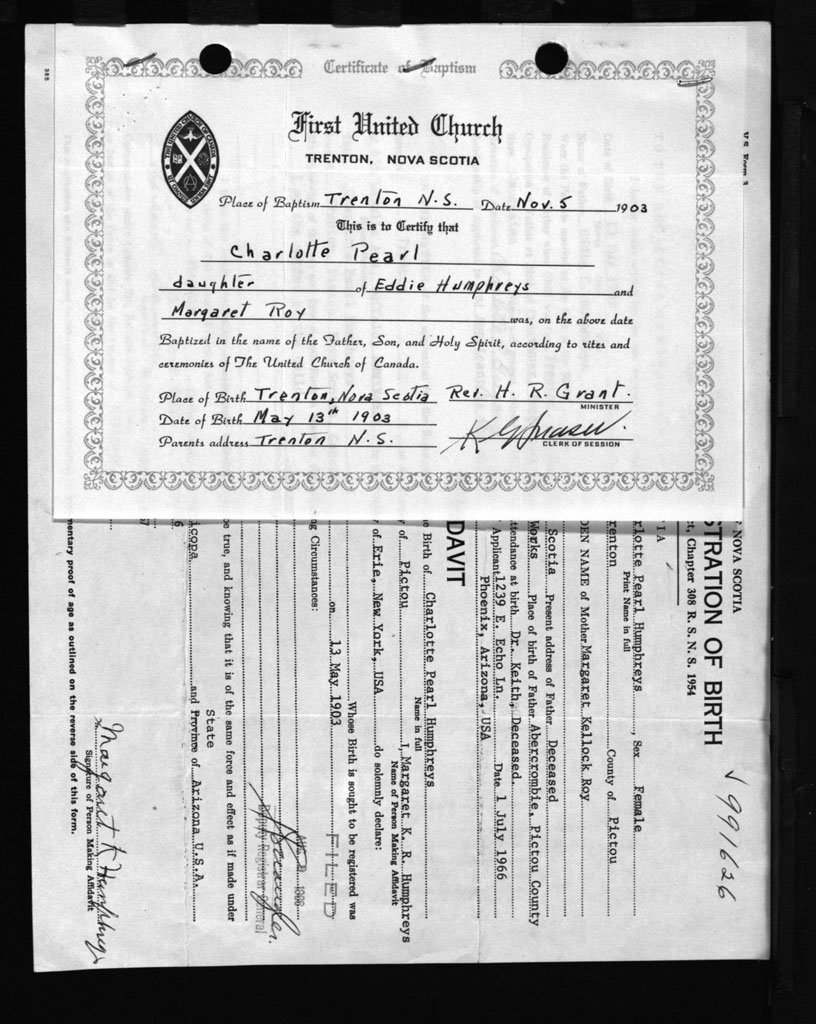 Certificate of Baptism
First United Church
TRENTON, NOVA SCOTIA
Place of Baptism Trenton N.S. Date Nov. 5 1903
This is to Certify that
Charlotte Pearl
daughter of Eddie Humphreys and
Margaret Roy was, on the above date
Baptized in the name of the Father, Son, and Holy Spirit, according to rites and
ceremonies of The United Church of Canada.
Place of Birth Trenton, Nova Scotia Rev. H. R. Grant.
MINISTER
Date of Birth May 13th 1903
Parents address Trenton N.S.
CLERK OF SESSION
NOVA SCOTIA
STRATION OF BIRTH
Chapter 308 R. S. N. S. 1954
√ 991626
rlotte Pearl Humphreys, Sex Female
Print Name in full
renton County of Pictou
DEN NAME of Mother Margaret Kellock Roy
Scotia Present address of Father Deceased
Works Place of birth of Father Abercrombie, Pictou County
ttendance at birth Dr. Keith, Deceased.
Applicant 1239 E. Echo Ln. Date 1 July 1966
Phoenix, Arizona, USA
DAVIT
e Birth of Charlotte Pearl Humphreys
Name in full
I, Margaret K. R. Humphreys
Name of Person Making Affidavit
of Pictou
of Erie, New York, USA do solemnly declare:
Whose Birth is sought to be registered was
on 13 May 1903
ng Circumstances:
FILED
1966
Deputy Registrar General
be true, and knowing that it is of the same force and effect as if made under
State
icopa and Province of Arizona U.S.A.
6
67
Margaret K Humphreys
Signature of Person Making Affidavit
mentary proof of age as outlined on the reverse side of this form.